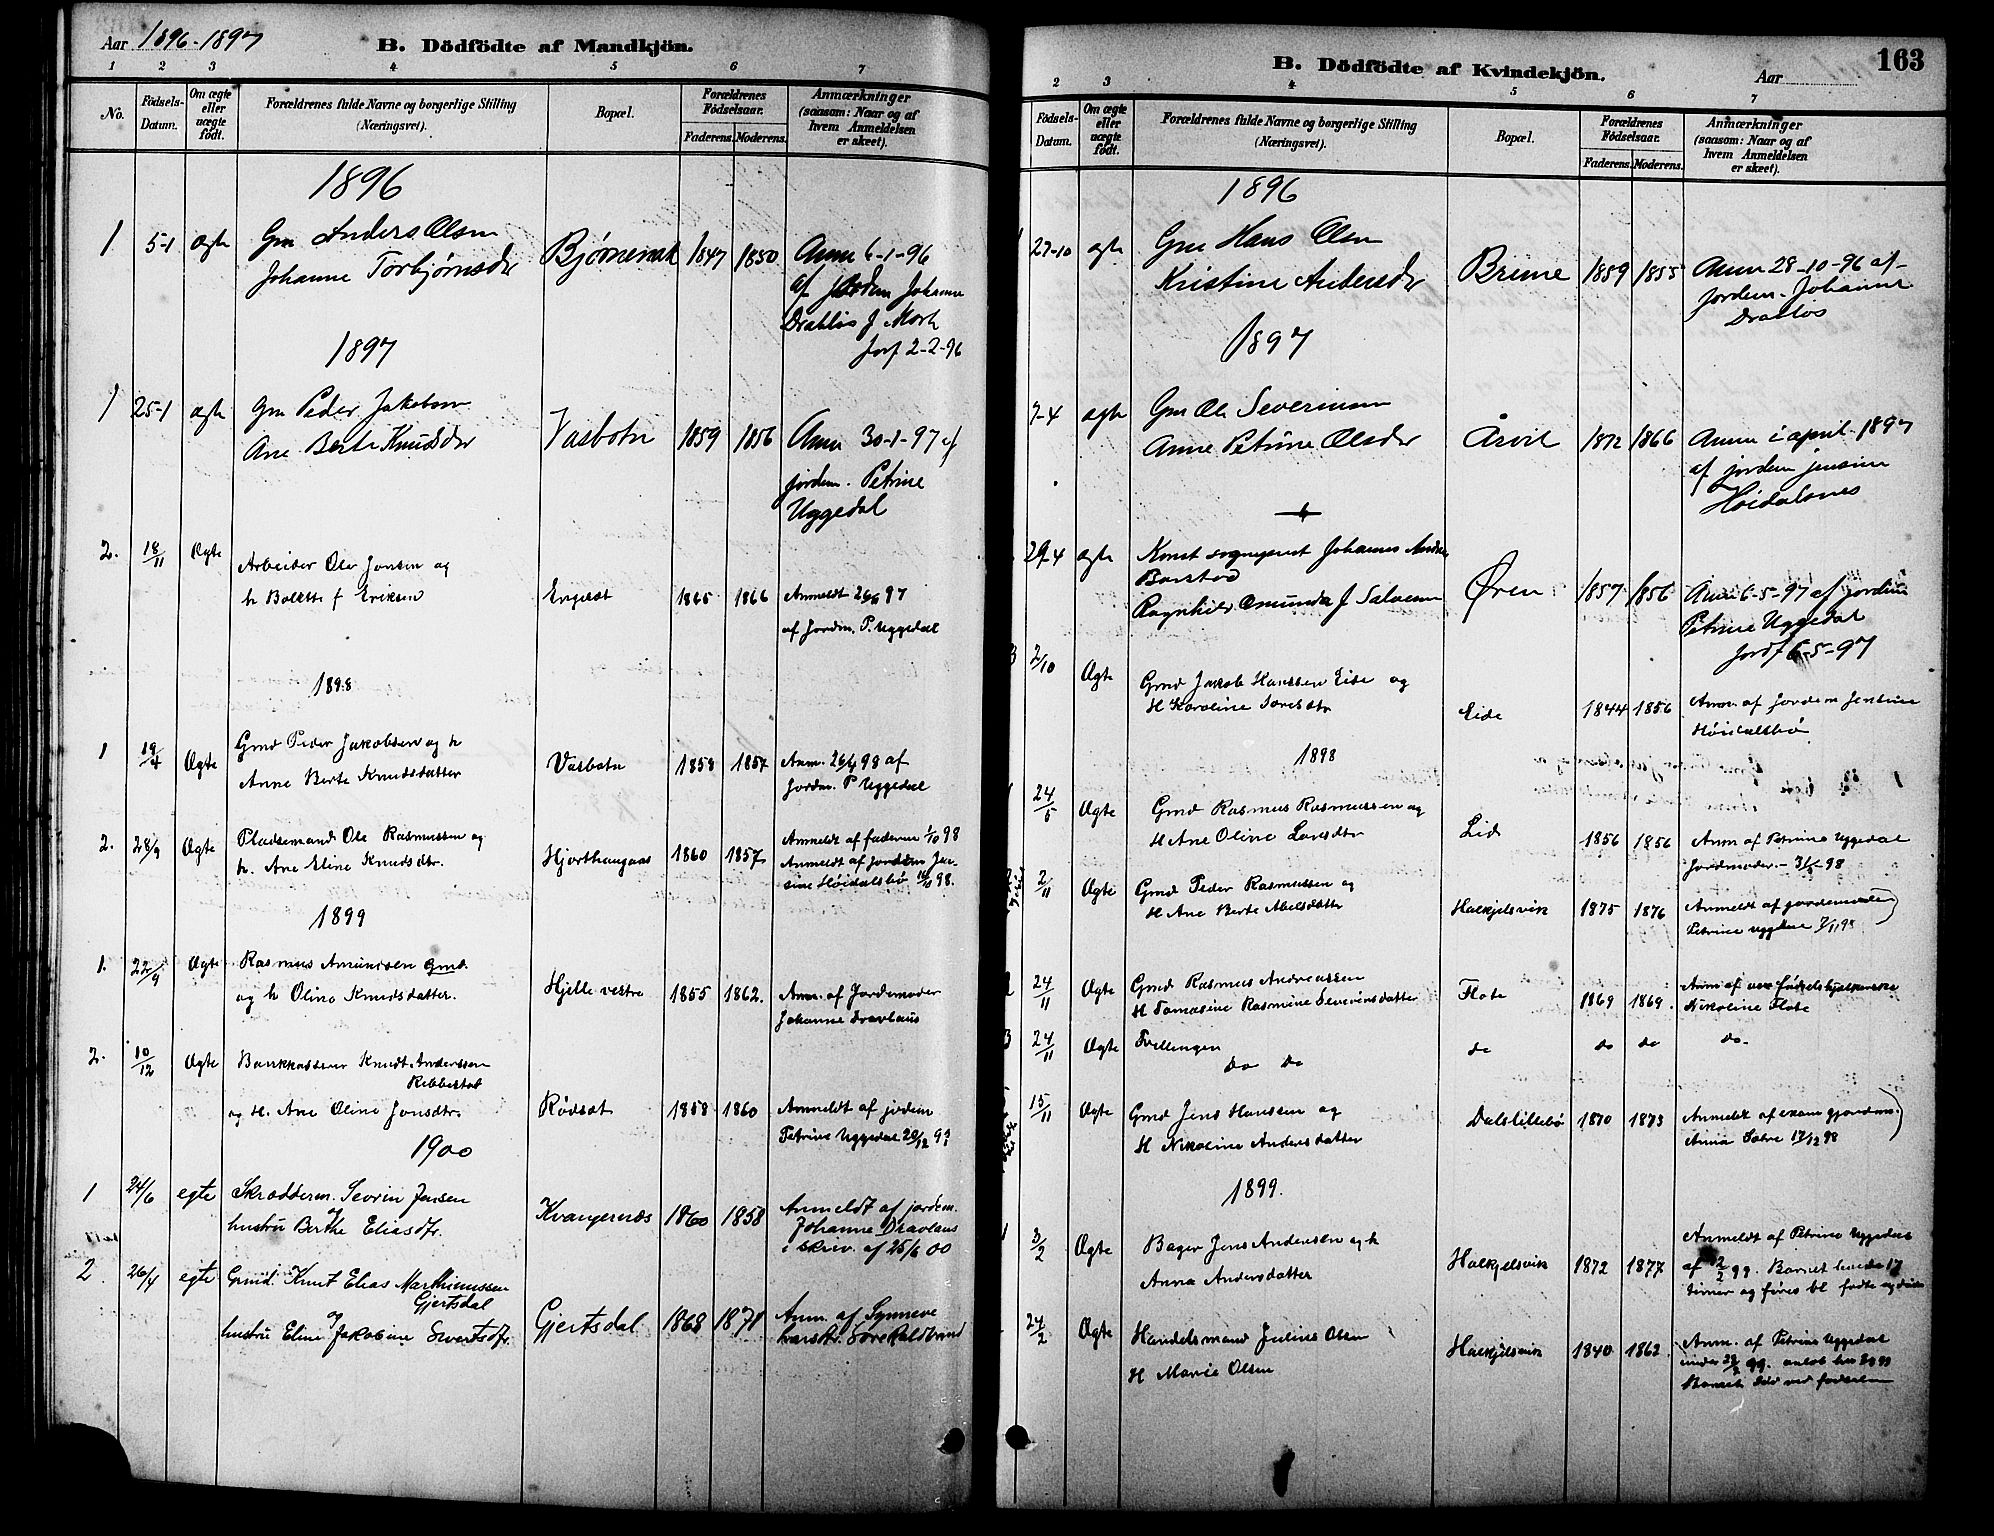 Aar 1896-1897
B. Dödfödte af Mandkjön.
1 2 3 4 5 6 7
No.
Födsels-Datum.
Om ægte eller uægte födt.
Forældrenes fulde Navne og borgerlige Stilling (Næringsvei).
Bopæl.
Forældrenes Födselsaar.
Faderens. Moderens.
Anmærkninger (saasom: Naar og af hvem Anmeldelsen er skeet).
1896
1 5-1 ægte Gm Anders Olsen
Johanne Torbjørnsdr 1847 1850 Anm 6-1-96
af Jordem Johanne
Drabløs f Mork
Jorf 2-2-96
1897
1 25-1 ægte Gm Peder Jakobsen
Ane Berte Knudsdr Vasbotn 1859 1856 Anm 30-1-97 af
jordem. Petrine
Uggedal
2. 18/11 Ægte Arbeider Ole Jonsen og
h Eriksen Engeset 1866 Anmeldt 97
af Jordm. P. Uggedal
1898
1 19/4 Ægte Gmd Peder Jakobsen og h
Anne Berte Knudsdatter Vasbotn 1858 1857 Anm. 98 af
Jordm. P Uggedal
2. 28/9 Ægte Pladsemand Ole Rasmussen og
h. Ane Eline Knudsdtr. Hjorthaugaas 1860 1857. Anmeldt af faderen 1/10 98
Anmeldt af jordem Jen-
sine Høidalsbø 98.
1899
1. 22/9 Ægte Rasmus Amundsen Gmd.
og h Oline Knudsdatter. Hjelle vestre 1855 1862. Anm. af Jordemoder
Johanne Dravlaus
2. 10/12 Ægte Bankkasserer Knudt Anderssen
Ribbestad
og H. Ane Oline Jonsdtr. Rødset 1858 1860 Anmeldt af jordem
Petrine Uggedal 20/12 99
1900
1 24/6 egte Skrædderm. Sevrin Jensen
og
hustru Berthe Eliasdtr. Kvangernæs 1860 1858 Anmeldt af jordem.
Johanne Dravlaus
i skriv. af 25/6 00
2 26/4 egte Grmd. Knut Elias Marthinussen
Gjertsdal
og
hustru Eline Jakobine Sivertsdtr. Gjertsdal 1868 1871 Anm. af Synneve
B. Dödfödte af Kvindekjön.
Aar
163
2 3 4 5 6 7
Födsels-Datum.
Om ægte eller uægte födt.
Forældrenes fulde Navne og borgerlige Stilling (Næringsvei).
Bopæl.
Forældrenes Födselsaar.
Faderens. Moderens.
Anmærkninger (saasom: Naar og af hvem Anmeldelsen er skeet).
1896
27-10 ægte Gm Hans Olsen
Kristine Andersdr Brune 1859 1855 Anm 28-10-96 af
jordem. Johanne
Drabløs
1897
7-4 ægte Gm Ole Severinsen
Anne Petrine Olsdr Aasvik 1872 1866 Anm i april 1897
af jordem Jensine
Høidalsnes
29-4 ægte Konst sogneprest Johannes
Barstad
Ragnhild f Salvesen Øren 1857 1856 Anm 6-5-97 af jordem
Petrine Uggedal
Jordf 6-5-97
3 2/10 Ægte Gmd Jakob Hanssen Eide og
H Karoline Eide 1844 1856 Anm. af Jordem Jensine
Høidalsbø
1898
24/5 Ægte Gmd Rasmus Rasmussen og
H Ane Oline Larsdtr Lid 1856 1856 Anm af Petrine Uggedal
Jordmoder 98
2/11 Ægte Gmd Peder Rasmussen og
H Ane Berte Abelsdatter Halkjelsvik 1875 1876 Anmeldt af jordemoder
Petrine Uggedal 7/11 98
24/11 Ægte Gmd Rasmus Andreassen
H Tomasine Rasmine Severinsdatter Flote 1869 1869. Anm af
Nikoline Flote
3 24/11 Ægte Tvillingen
do do do do do do.
15/11 Ægte Gmd Jens Hanssen og
H Nikoline Andersdatter Dalslillebø 1870 1873 Anmeldt af exam gjordem.
Anna Solve 17/12 98
1899.
3/2 Ægte Bager Jens Andersen og h
Anna Andersdatter Halkjelsvik 1872 1877 Anmeldt af Petrine Uggedal
af 12/2 99. Barnet levede 17
timer og føres bl. fødte og døde
24/2 Ægte Handelsmand Julius Olsen
H Marie Olsen Halkjelsvik 1840 1862. Anm. af Petrine Uggedal
under 99.
Barnet død ved fødselen